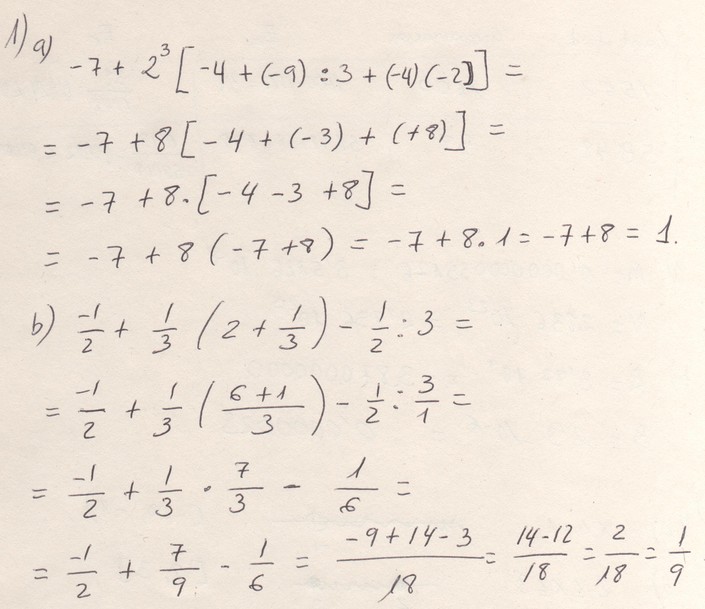 1) a) -7 + 2³ [ -4 + (-9) : 3 + (-4) (-2) ] =
= -7 + 8 [ -4 + (-3) + (+8) ] =
= -7 + 8 · [ -4 -3 +8 ] =
= -7 + 8 ( -7 +8 ) = -7 + 8 · 1 = -7 + 8 = 1.
b) -1/2 + 1/3 ( 2 + 1/3 ) - 1/2 : 3 =
= -1/2 + 1/3 ( (6 + 1)/3 ) - 1/2 : 3/1 =
= -1/2 + 1/3 · 7/3 - 1/6 =
= -1/2 + 7/9 - 1/6 = (-9 + 14 - 3)/18 = (14 - 12)/18 = 2/18 = 1/9